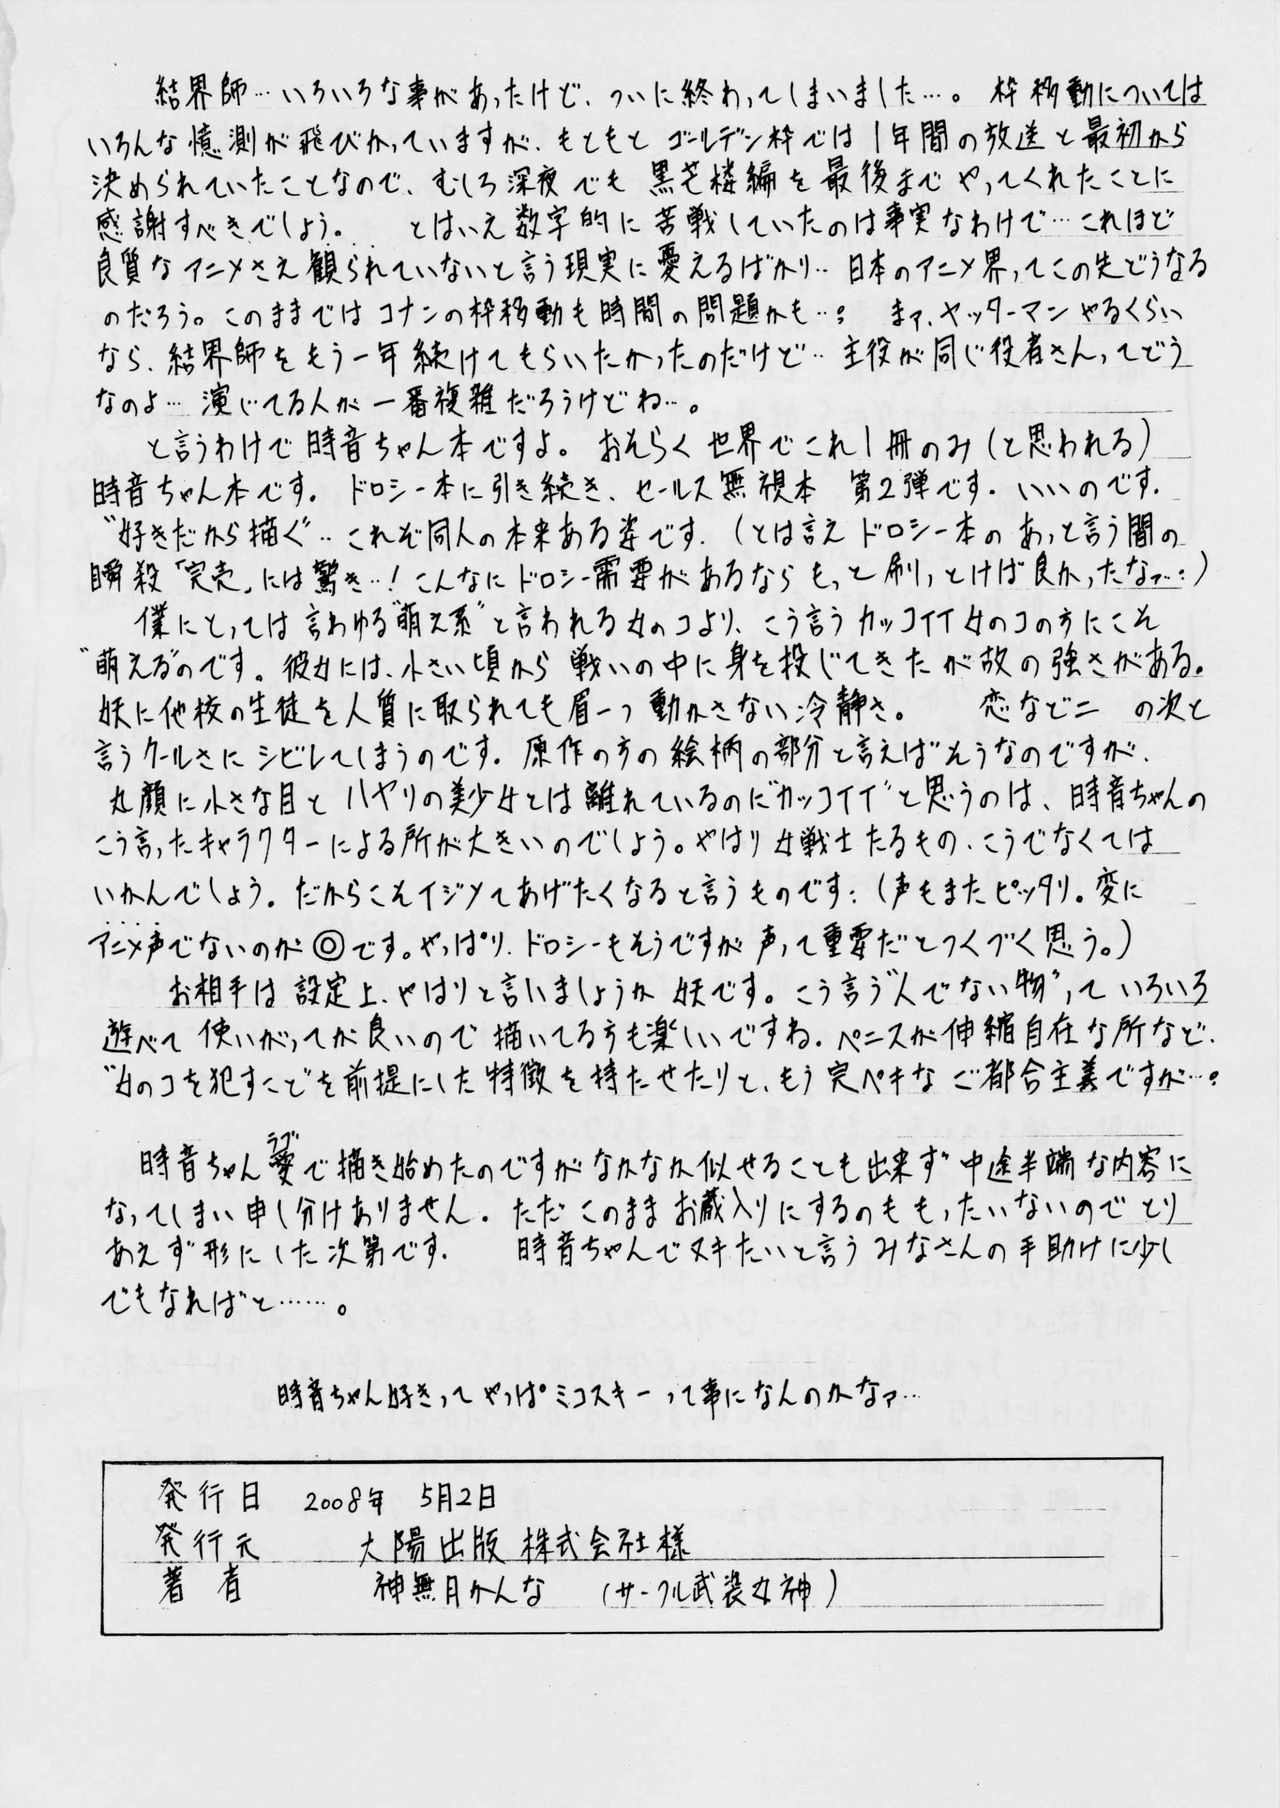 結界師…いろいろな事があったけど、ついに終わってしまいました…。枠移動については
いろんな憶測が飛びかっていますが、もともとゴールデン枠では1年間の放送と最初から
決められていたことなので、むしろ深夜でも黒芒楼編を最後までやってくれたことに
感謝すべきでしょう。 とはいえ数字的に苦戦していたのは事実なわけで…これほど
良質なアニメさえ観られていないと言う現実に憂えるばかり…日本のアニメ界ってこの先どうなる
のだろう。このままではコナンの枠移動も時間の問題かも…? まァ、ヤッターマンやるくらい
なら、結界師をもう一年続けてもらいたかったのだけど…主役が同じ役者さんってどう
なのよ…演じてる人が一番複雑だろうけどね…。
と言うわけで時音ちゃん本ですよ。おそらく世界でこれ1冊のみ(と思われる)
時音ちゃん本です。ドロシー本に引き続き、セールス無視本 第2弾です。いいのです。
“好きだから描く”…これぞ同人の本来ある姿です。(とは言えドロシー本のあっと言う間の
瞬殺「完売」には驚き…!こんなにドロシー需要があるならもっと刷っとけば良かったなァ…:)
僕にとっては言わゆる“萌え系”と言われる女のコより、こう言うカッコイイ女のコの方にこそ
“萌える”のです。彼女には、小さい頃から戦いの中に身を投じてきたが故の強さがある。
妖に他校の生徒を人質に取られても眉一つ動かさない冷静さ。 恋など二の次と
言うクールさにシビレてしまうのです。原作の方の絵柄の部分と言えばそうなのですが、
丸顔に小さな目とハヤリの美少女とは離れているのに“カッコイイ”と思うのは、時音ちゃんの
こう言ったキャラクターによる所が大きいのでしょう。やはり女戦士たるもの、こうでなくては
いかんでしょう。だからこそイジメてあげたくなると言うものです:(声もまたピッタリ。変に
アニメ声でないのが◎です。やっぱり、ドロシーもそうですが声って重要だとつくづく思う。)
お相手は設定上、やはりと言いましょうか妖です。こう言う“人でない物”っていろいろ
遊べて使いがってが良いので描いてる方も楽しいですね。ペニスが伸縮自在な所など、
“女のコを犯すこと”を前提にした特徴を持たせたりと、もう完ペキなご都合主義ですが…?
時音ちゃん愛(ラブ)で描き始めたのですがなかなか似せることも出来ず中途半端な内容に
なってしまい申し分けありません。ただこのままお蔵入りにするのももったいないのでとり
あえず形にした次第です。 時音ちゃんでヌキたいと言うみなさんの手助けに少し
でもなればと……。
時音ちゃん好きってやっぱミコスキーって事になんのかなァ…
発行日 2008年 5月2日
発行元 大陽出版株式会社様
著者 神無月かんな (サークル武装女神)